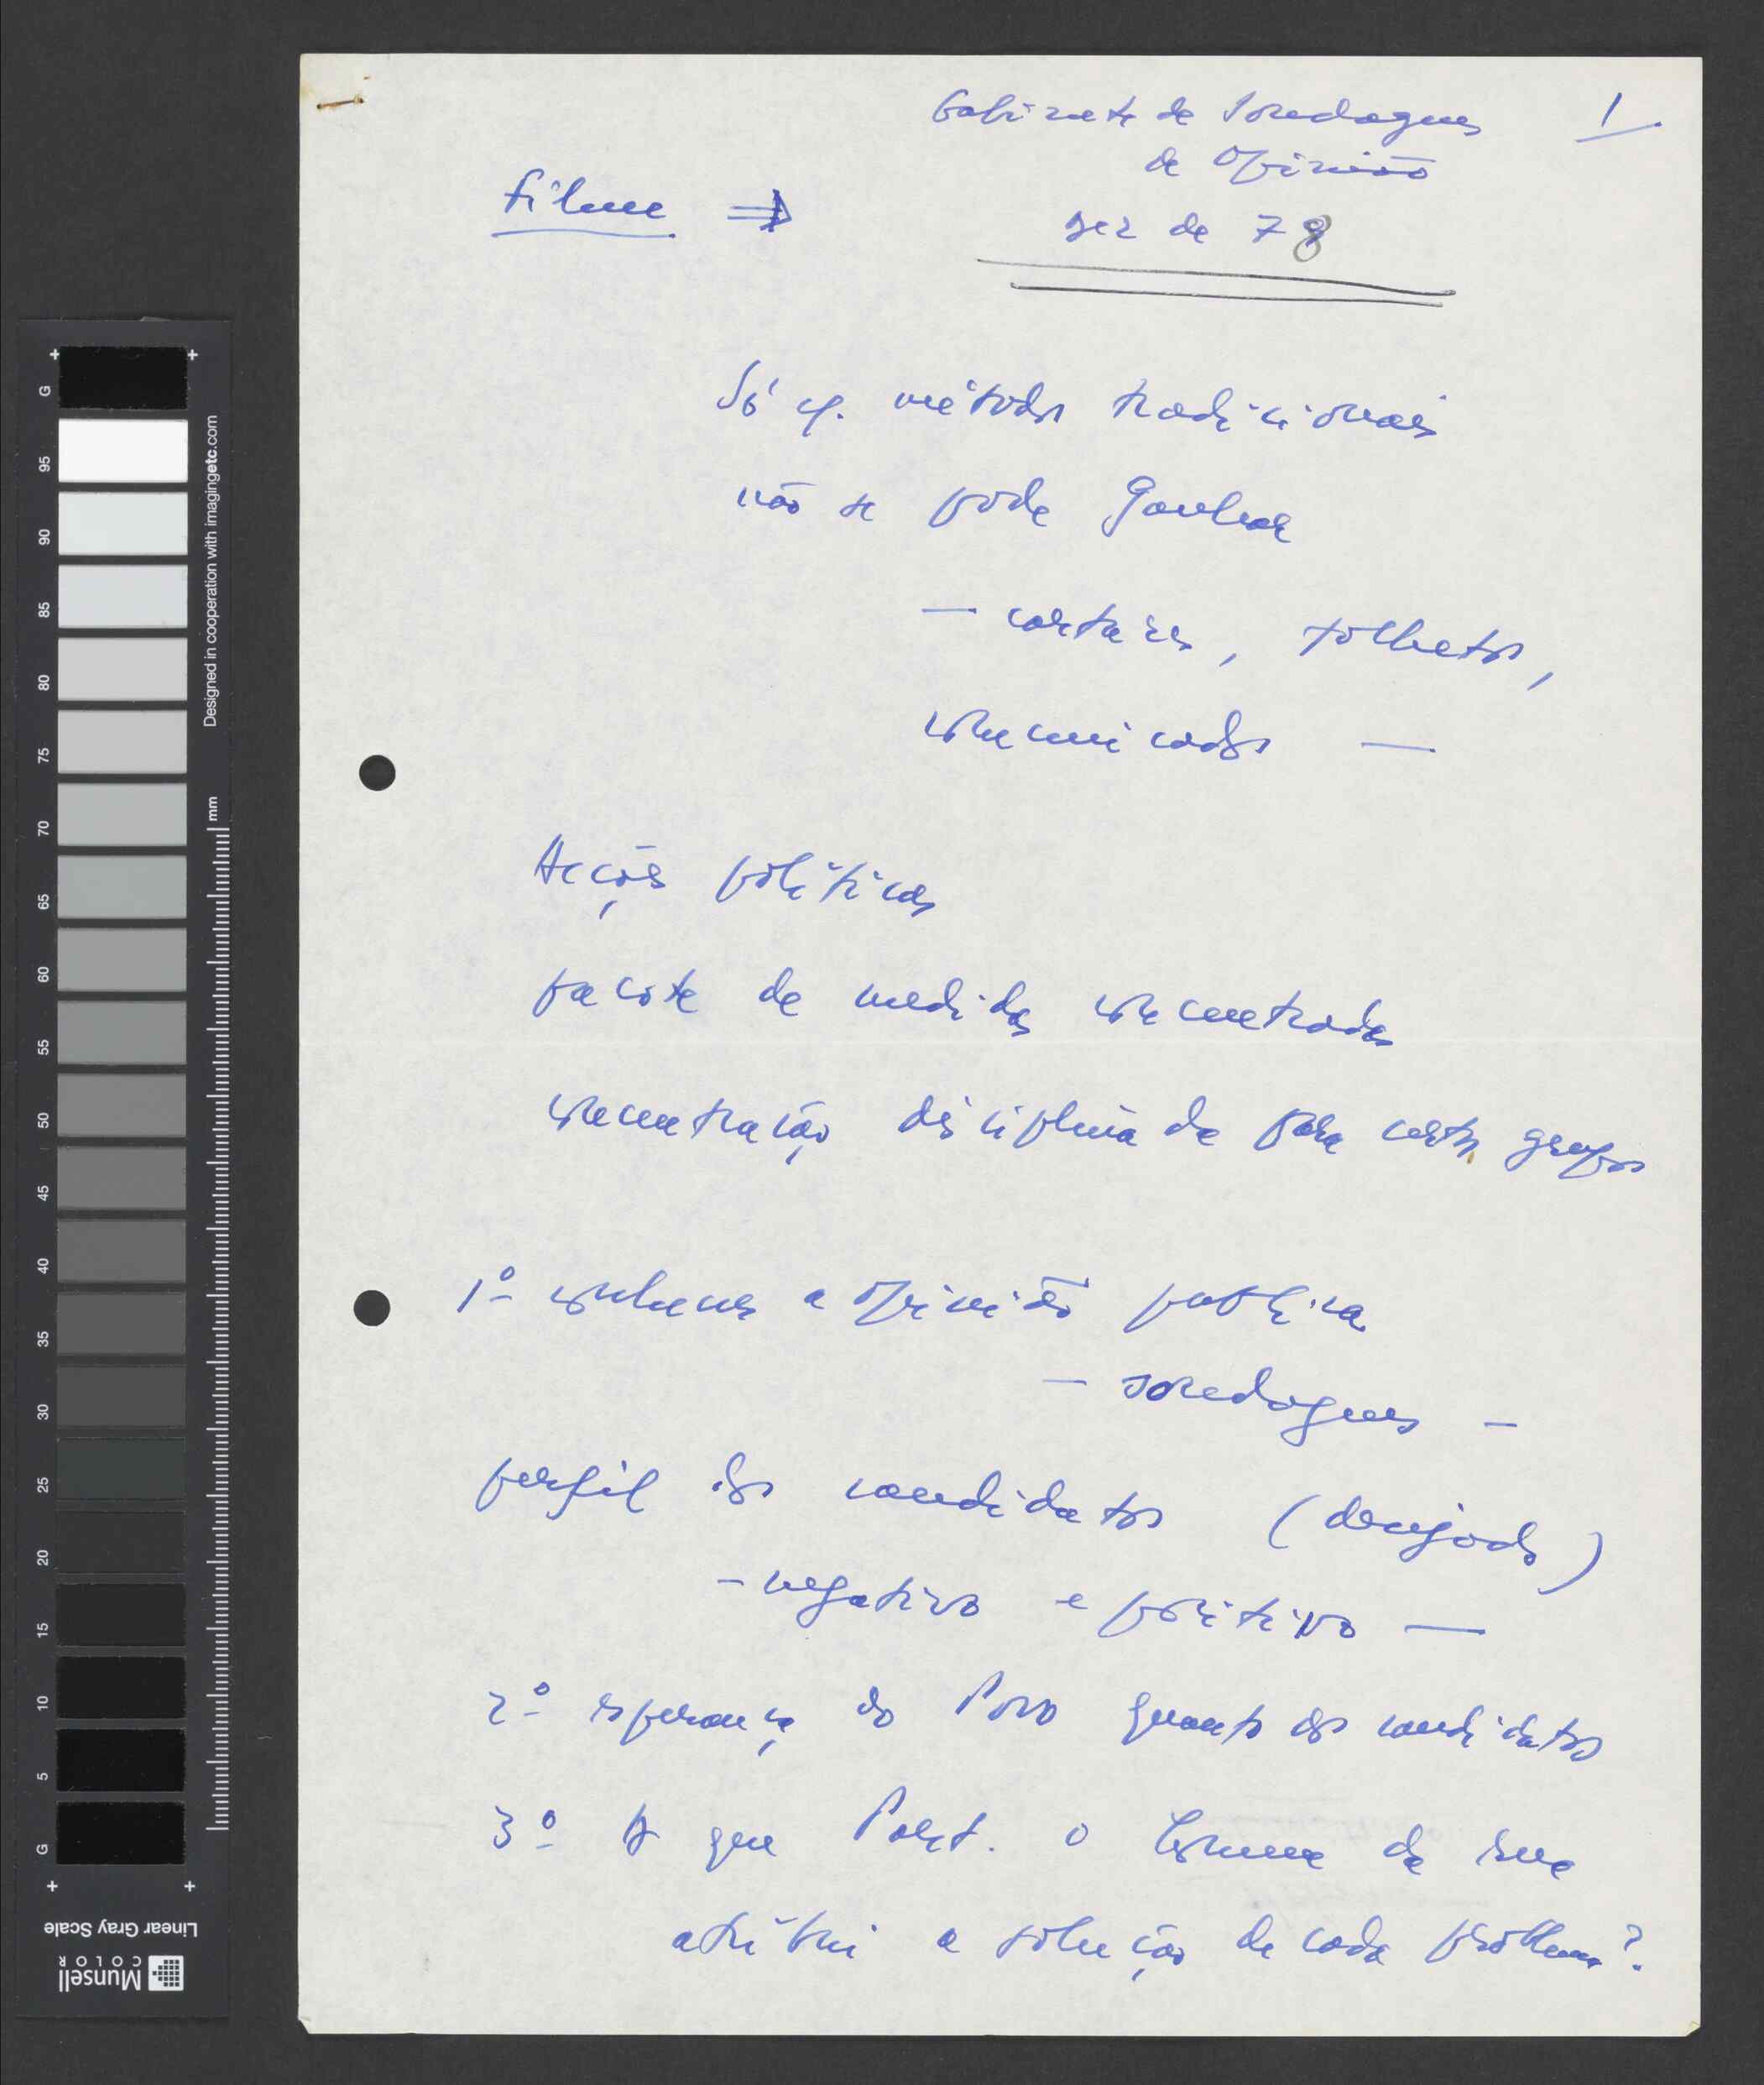 Gabinete de Sondagens 1.
de Opinião
Filme ⇒ Dez de 78
Só c/. métodos tradicionais
não se pode Ganhar
— cartazes, folhetos,
comunicados —
Acções políticas
pacote de medidas concentradas
concentração disciplinada para certos grupos
1º conhecer a opinião publica
— sondagens —
perfil dos candidatos (desejado)
- negativo e positivo —
2º esperança do Povo quanto aos candidatos
3º A que Part. o homem da rua
atribui a solução de cada problema?
G
95
90
85
80
75
70
65
60
55
50
45
40
35
30
25
20
15
10
5
G
mm
Designed in cooperation with imagingetc.com
Linear Gray Scale
Munsell
COLOR